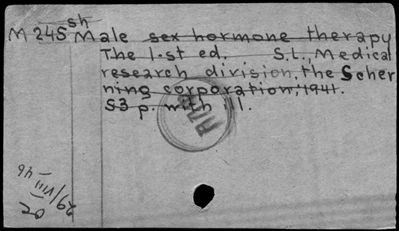 sh
M 245 Male sex hormone therapy
The 1-st ed. S.L., Medical
research division, the Scher
ning corporation, 1941.
53 p. with ill.